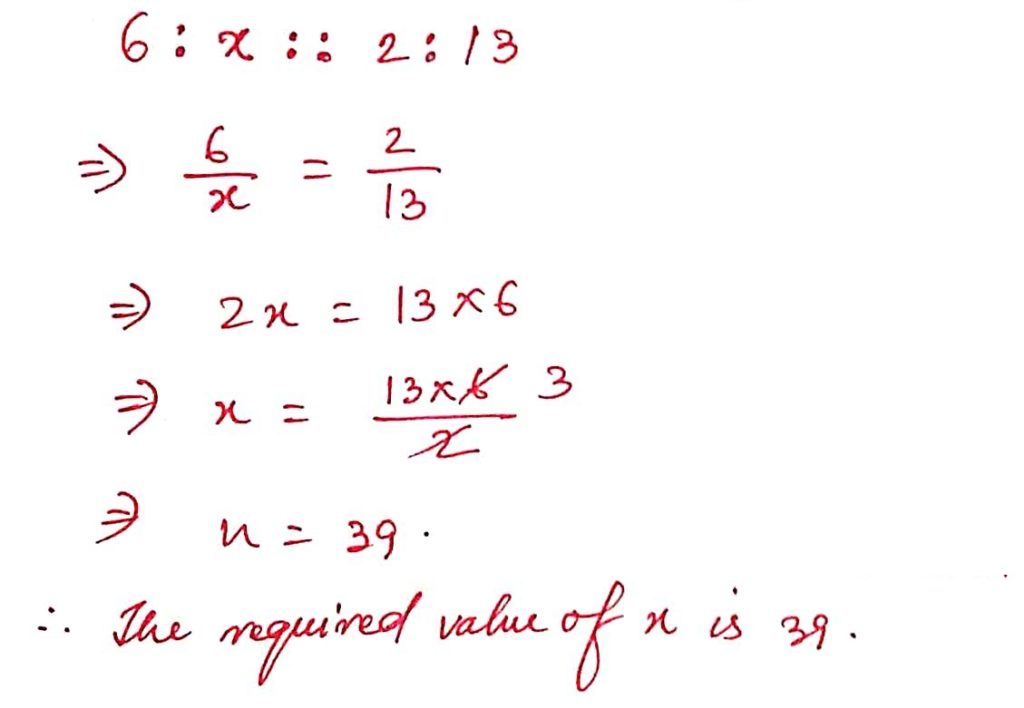 6 : x :: 2 : 13
⇒ 6/x = 2/13
⇒ 2x = 13 × 6
⇒ x = 13×6/2 3
⇒ x = 39.
∴ The required value of x is 39.